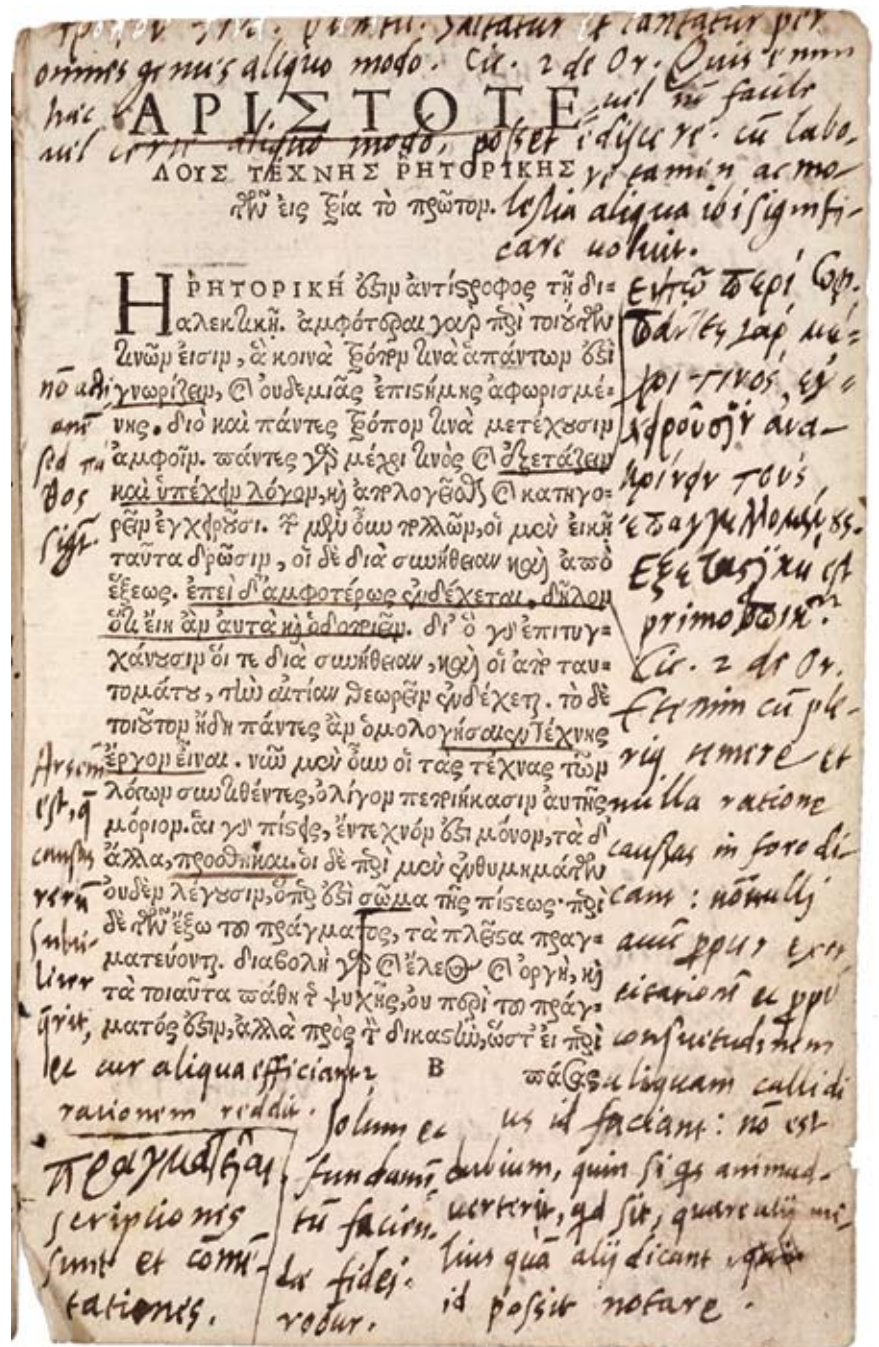 Saltatur et cantatur per
omnes genus aliquo modo. Cic. 2 de Or. Quis enim
hac
ΑΡΙΣΤΟΤΕ
uel nō facile
aliquo modo, posset ediscere. cū labo-
ΛΟΥΣ ΤΕΧΝΗΣ ῬΗΤΟΡΙΚΗΣ
ac mo-
τῶν εἰς τρία τὸ πρῶτον.
lestia aliqua ibi signifi-
care uoluit.
Η ῬΗΤΟΡΙΚΉ ἐστιν ἀντίστροφος τῇ δι-
αλεκτικῇ. ἀμφότεραι γὰρ περὶ τοιούτων
τινῶν εἰσιν, ἃ κοινὰ τρόπον τινὰ ἁπάντων ἐστὶ
γνωρίζειν, καὶ οὐδεμιᾶς ἐπιστήμης ἀφωρισμέ-
νης. διὸ καὶ πάντες τρόπον τινὰ μετέχουσιν
ἀμφοῖν. πάντες γὰρ μέχρι τινὸς καὶ ἐξετάζειν
καὶ ὑπέχειν λόγον, καὶ ἀπολογεῖσθαι καὶ κατηγο-
ρεῖν ἐγχειροῦσι. τῶν μὲν οὖν πολλῶν, οἱ μὲν εἰκῆ
ταῦτα δρῶσιν, οἱ δὲ διὰ συνήθειαν καὶ ἀπὸ
ἕξεως. ἐπεὶ δ' ἀμφοτέρως ἐνδέχεται, δῆλον
ὅτι εἴη ἂν αὐτὰ καὶ ὁδοποιεῖν. δι' ὃ γὰρ ἐπιτυγ-
χάνουσιν οἵ τε διὰ συνήθειαν, καὶ οἱ ἀπὸ ταυ-
τομάτου, τὴν αἰτίαν θεωρεῖν ἐνδέχεται. τὸ δὲ
τοιοῦτον ἤδη πάντες ἂν ὁμολογήσαιεν τέχνης
ἔργον εἶναι. νῦν μὲν οὖν οἱ τὰς τέχνας τῶν
λόγων συντιθέντες, ὀλίγον πεποιήκασιν αὐτῆς
μόριον. αἱ γὰρ πίστεις, ἔντεχνόν ἐστι μόνον, τὰ δ'
ἄλλα, προσθῆκαι. οἱ δὲ περὶ μὲν ἐνθυμημάτων
οὐδὲν λέγουσιν, ὅπερ ἐστὶ σῶμα τῆς πίστεως. περὶ
δὲ τῶν ἔξω τοῦ πράγματος, τὰ πλεῖστα πραγ-
ματεύονται. διαβολὴ γὰρ καὶ ἔλεος καὶ ὀργὴ, καὶ
τὰ τοιαῦτα πάθη τῆς ψυχῆς, οὐ περὶ τοῦ πράγ-
ματός ἐστιν, ἀλλὰ πρὸς τὸν δικαστήν, ὥστ' εἰ περὶ
B
πάσας
sed
θος
Artem
est, q̄
causas
rerū
subti-
liter
q̄rit,
et cur aliqua efficiant
rationem reddit.
scriptiones
sunt et cōmē-
tationes.
Solum et
fundamē-
tū facien-
dæ fidei
πάντες γὰρ μέ-
χρι τινός, ἐγ-
χειροῦσιν ἀνα-
κρίνειν τοὺς
ἐπαγγελλομένους.
Εξεταστικὴ est
primo
Cic. 2 de Or.
Etenim cū ple-
riq temere et
nulla ratione
causas in foro di-
cant: nōnulli
autē ppter exer
citationē et ppt
consuetudinem
aliquam callidi
us id faciant: nō est
dubium, quin si qs animad-
uerterit, qd sit, quare alij me-
lius quā alij dicant,
id possit notare.